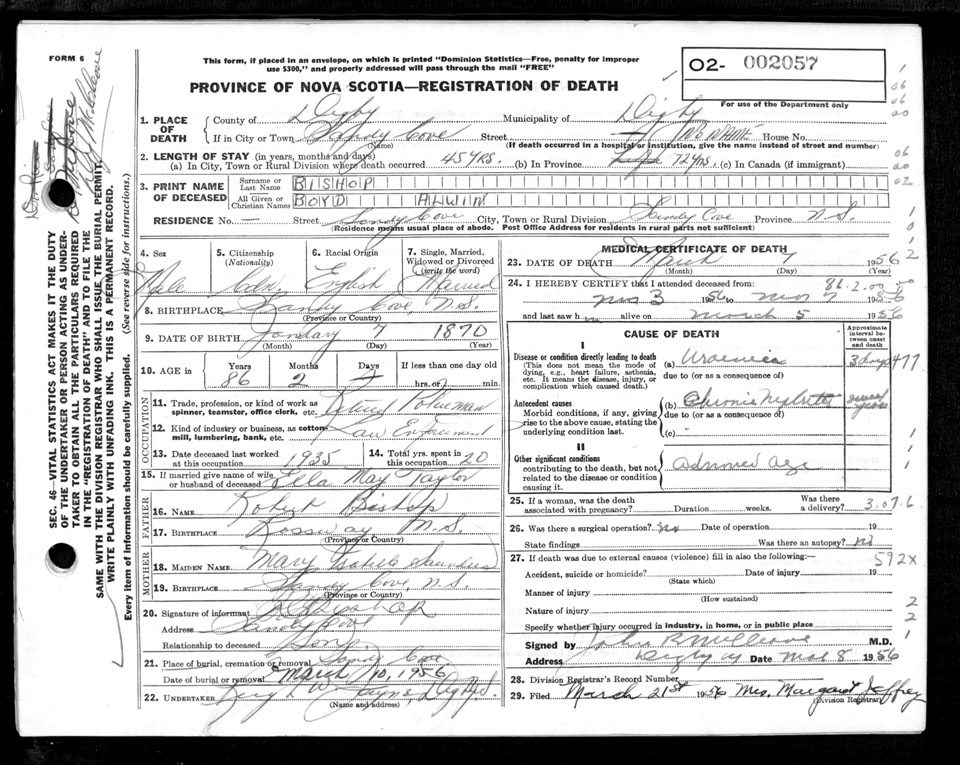 FORM 6
This form, if placed in an envelope, on which is printed "Dominion Statistics—Free, penalty for improper
use $300," and properly addressed will pass through the mail "FREE"
PROVINCE OF NOVA SCOTIA—REGISTRATION OF DEATH
O2- 002057
For use of the Department only
1. PLACE OF DEATH
County of Digby Municipality of Digby
If in City or Town Sandy Cove Street House No.
(Name) (If death occurred in a hospital or institution, give the name instead of street and number)
2. LENGTH OF STAY (in years, months and days)
(a) In City, Town or Rural Division where death occurred 45 yrs. (b) In Province (c) In Canada (if immigrant)
3. PRINT NAME OF DECEASED
Surname or Last Name BISHOP
All Given or Christian Names BOYD ALWIN
RESIDENCE No. — Street Sandy Cove City, Town or Rural Division Sandy Cove Province N.S.
(Residence means usual place of abode. Post Office Address for residents in rural parts not sufficient)
4. Sex Male
5. Citizenship (Nationality) Cdn.
6. Racial Origin English
7. Single, Married, Widowed or Divorced (write the word) Married
8. BIRTHPLACE Sandy Cove, N.S.
(Province or Country)
9. DATE OF BIRTH January 7 1870
(Month) (Day) (Year)
10. AGE in Years 86 Months 2 Days If less than one day old hrs. or min.
OCCUPATION
11. Trade, profession, or kind of work as spinner, teamster, office clerk, etc. Retired Policeman
12. Kind of industry or business, as cotton-mill, lumbering, bank, etc. Law Enforcement
13. Date deceased last worked at this occupation 1935
14. Total yrs. spent in this occupation 20
15. If married give name of wife or husband of deceased Ella May Taylor
FATHER
16. NAME Robert Bishop
17. BIRTHPLACE Rossway N.S.
(Province or Country)
MOTHER
18. MAIDEN NAME Mary Isabele Saunders
19. BIRTHPLACE Sandy Cove, N.S.
(Province or Country)
20. Signature of informant Bishop
Address Sandy Cove
Relationship to deceased Son
21. Place of burial, cremation or removal Sandy Cove
Date of burial or removal March 10, 1956
22. UNDERTAKER Jayne, Digby
(Name and address)
MEDICAL CERTIFICATE OF DEATH
23. DATE OF DEATH March 7 1956
(Month) (Day) (Year)
24. I HEREBY CERTIFY that I attended deceased from:
Mar 3 1956 to Mar 7 1956
and last saw h alive on March 5 1956
86.2.00
CAUSE OF DEATH
Approximate interval between onset and death
I
Disease or condition directly leading to death
(This does not mean the mode of dying, e.g., heart failure, asthenia, etc. It means the disease, injury, or complication which caused death.)
(a) Uraemia 3 days
due to (or as a consequence of)
Antecedent causes
Morbid conditions, if any, giving rise to the above cause, stating the underlying condition last.
(b) Chronic Nephritis several years
due to (or as a consequence of)
(c)
II
Other significant conditions
contributing to the death, but not related to the disease or condition causing it.
Advanced Age
25. If a woman, was the death associated with pregnancy? Duration weeks. Was there a delivery?
3.07.6
26. Was there a surgical operation? No Date of operation 19
State findings Was there an autopsy? No
27. If death was due to external causes (violence) fill in also the following:—
592X
Accident, suicide or homicide? Date of injury 19
(State which)
Manner of injury
(How sustained)
Nature of injury
Specify whether injury occurred in industry, in home, or in public place
Signed by M.D.
Address Digby Date Mar 8 1956
28. Division Registrar's Record Number
29. Filed March 21st 1956 Mrs. Margaret Jeffrey
(Division Registrar)
SEC. 46—VITAL STATISTICS ACT MAKES IT THE DUTY
OF THE UNDERTAKER OR PERSON ACTING AS UNDER-
TAKER TO OBTAIN ALL THE PARTICULARS REQUIRED
IN THE "REGISTRATION OF DEATH" AND TO FILE THE
SAME WITH THE DIVISION REGISTRAR WHO SHALL ISSUE THE BURIAL PERMIT.
WRITE PLAINLY WITH UNFADING INK. THIS IS A PERMANENT RECORD.
Every item of information should be carefully supplied. (See reverse side for instructions.)